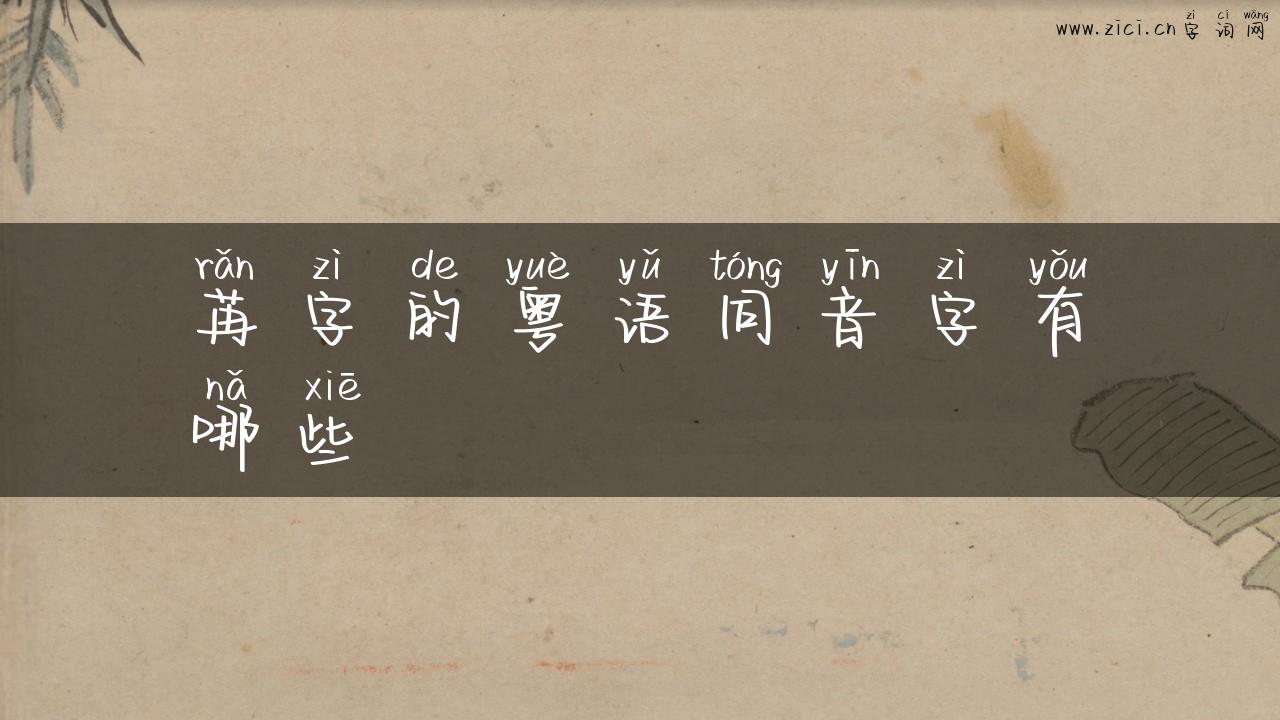 zì cí wǎng
www.zici.cn 字词网
rǎn zì de yuè yǔ tóng yīn zì yǒu
苒字的粤语同音字有
nǎ xiē
哪些